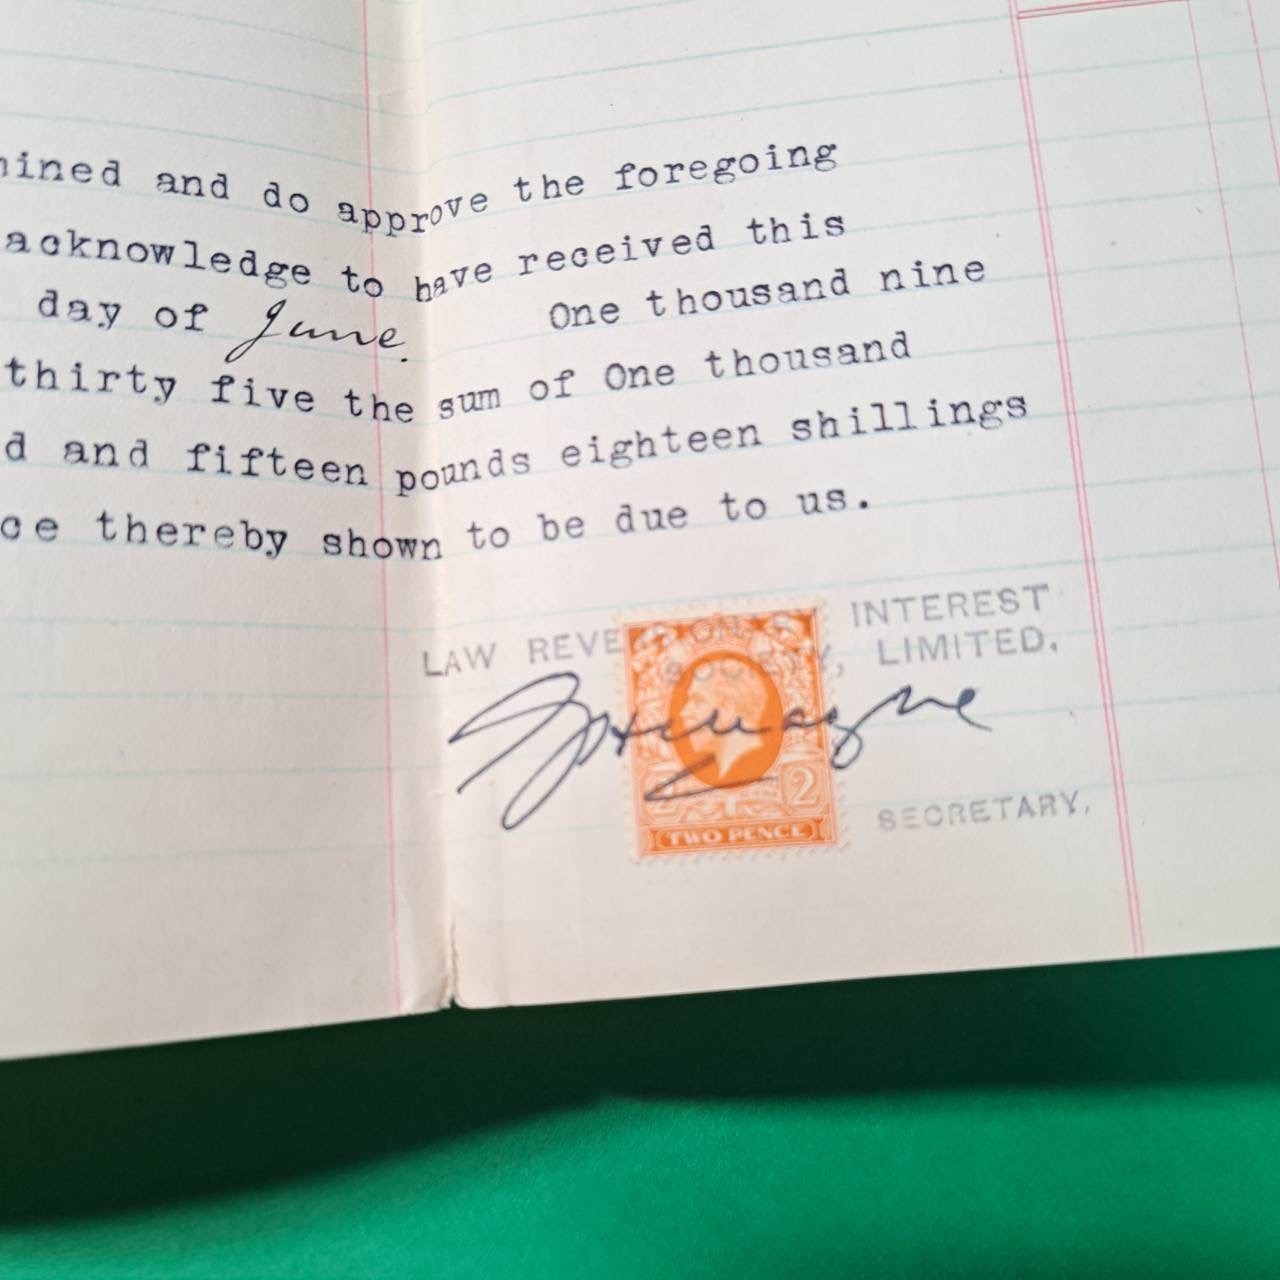 ined and do approve the foregoing
acknowledge to have received this
day of June. One thousand nine
thirty five the sum of One thousand
d and fifteen pounds eighteen shillings
ce thereby shown to be due to us.
LAW REVERSIONARY INTEREST
SOCIETY, LIMITED.
2 2
TWO PENCE
SECRETARY.